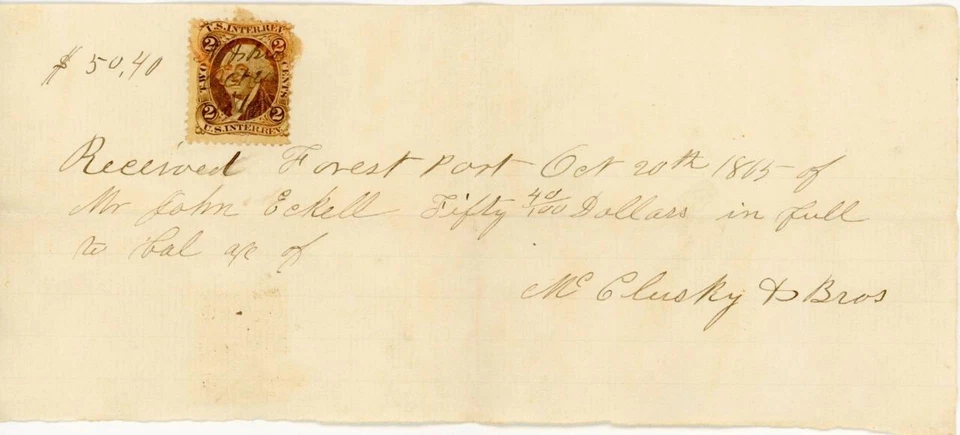 $ 50,40
U.S. INTER. REV.
2 2
TWO CENTS
2 2
U.S. INTER. REV.
Received Forest Port Oct 20th 1865 of
Mr John Eckell Fifty 40/100 Dollars in full
to Bal a/c of
Mc Clusky & Bros